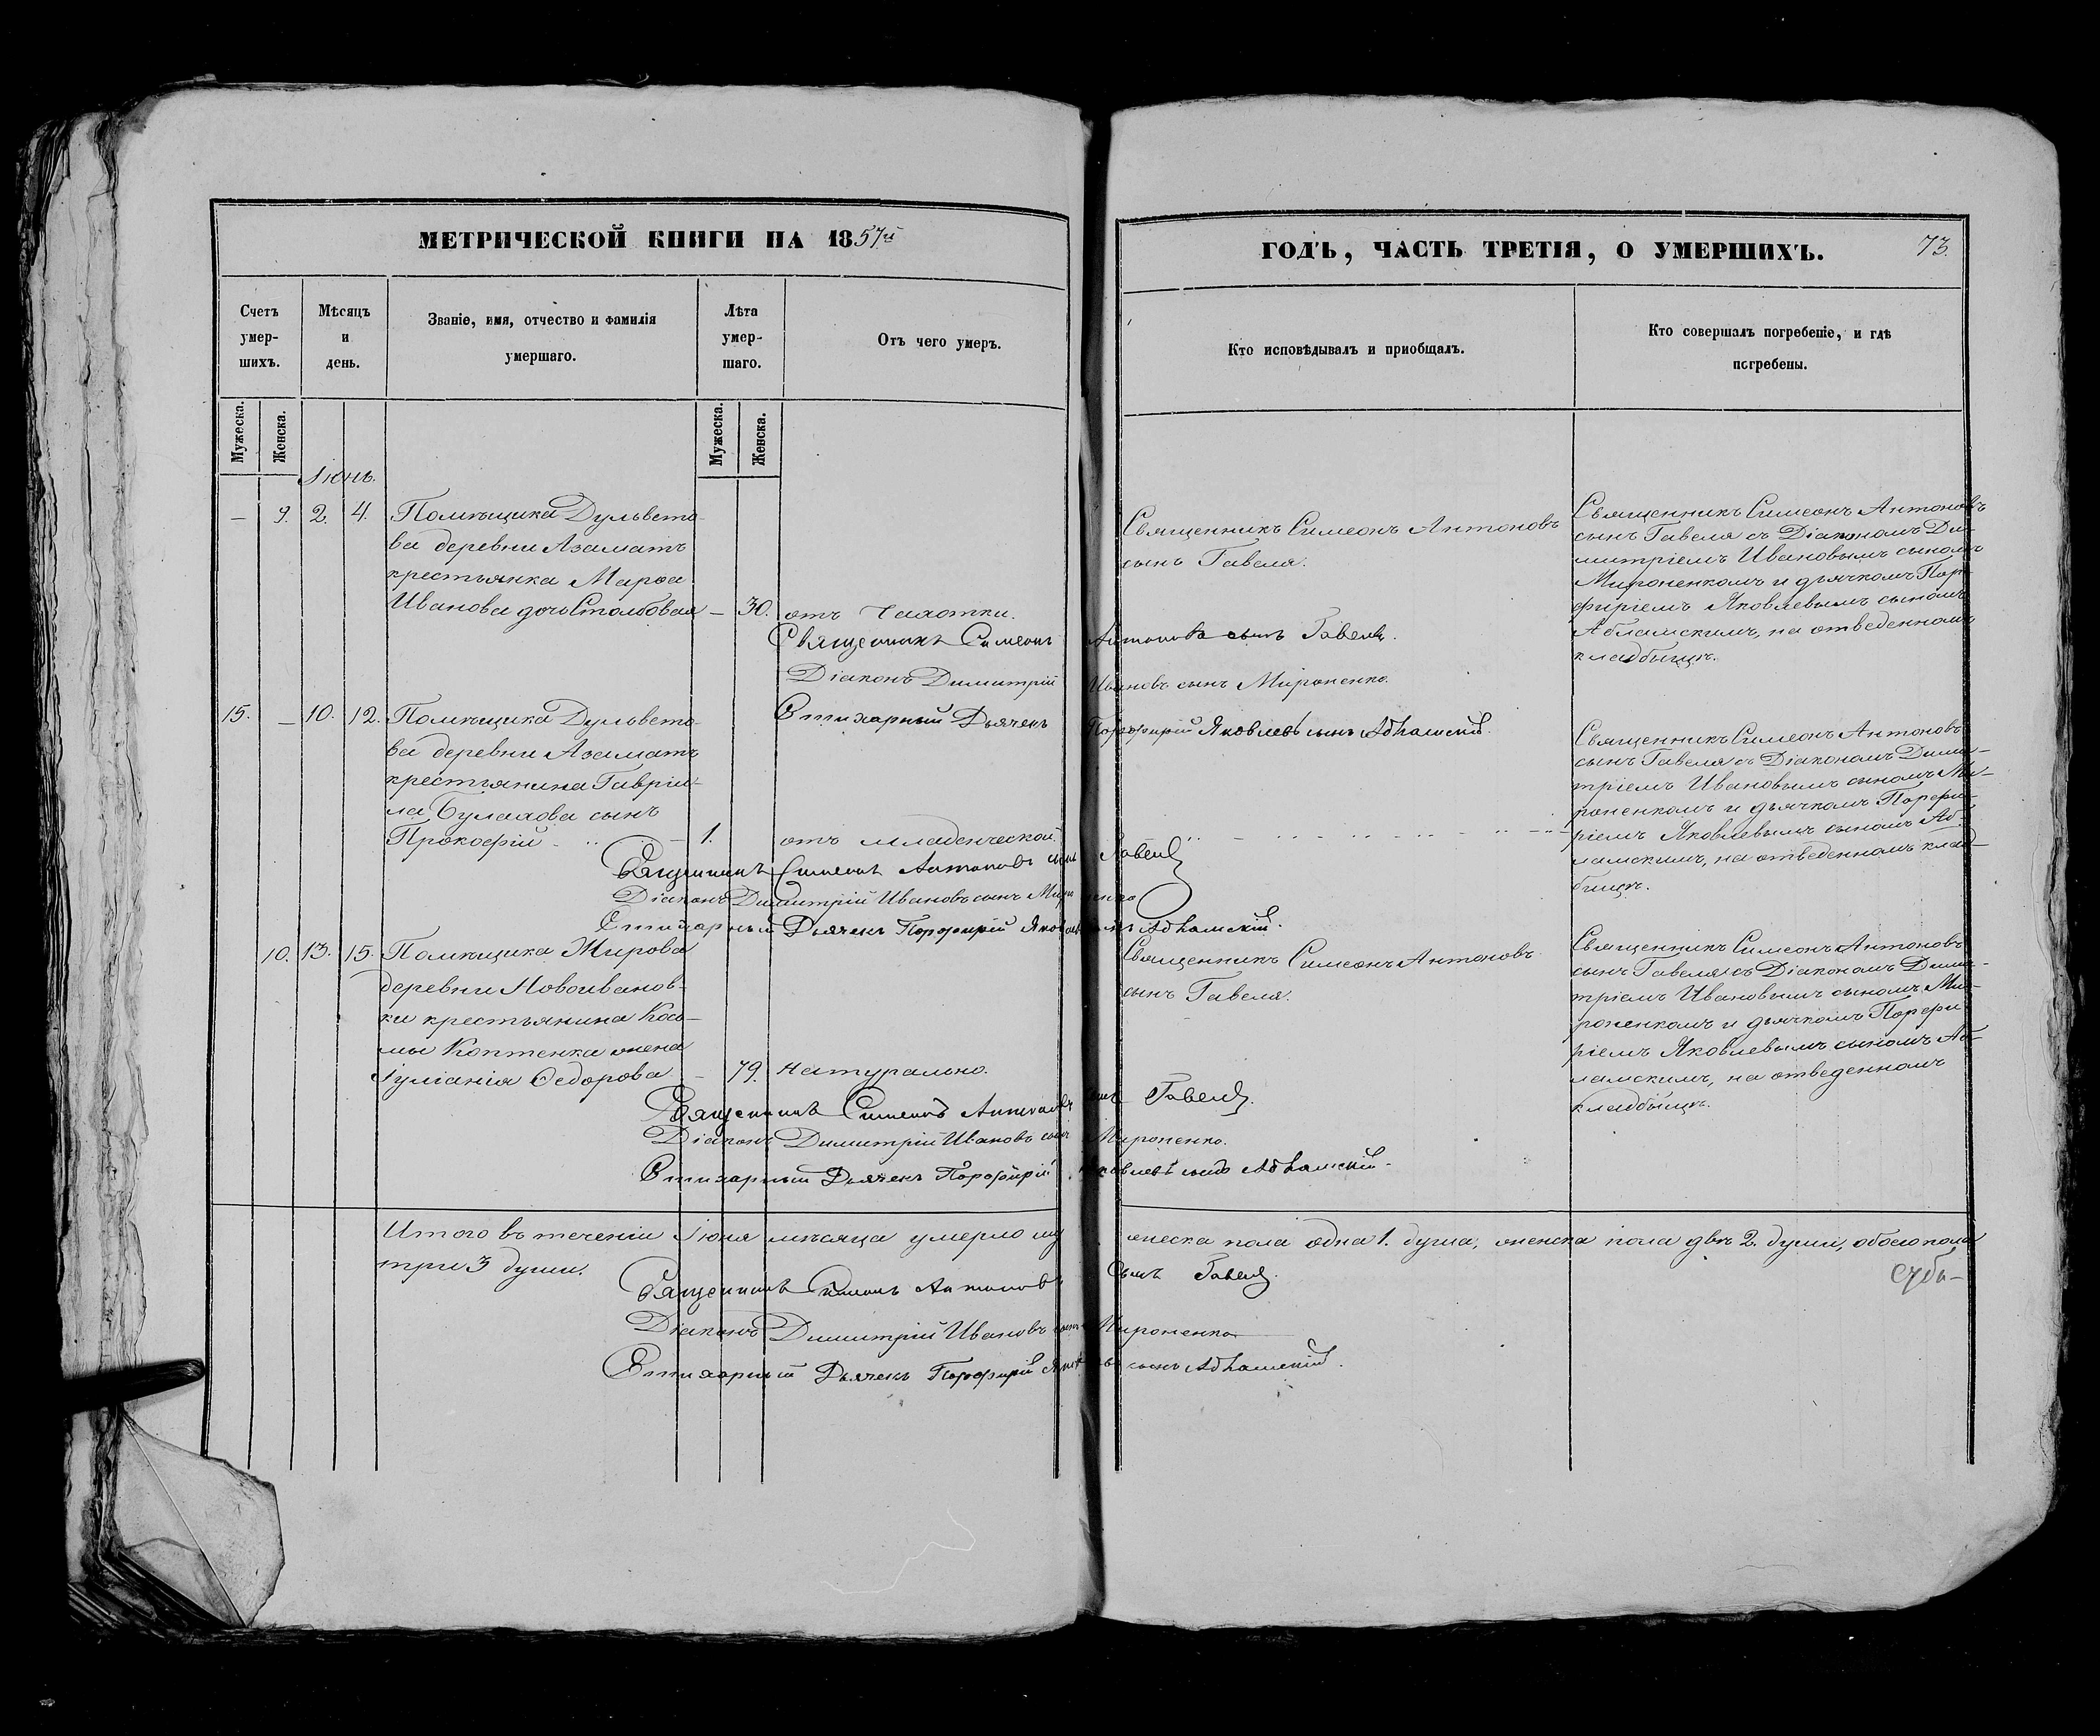 МЕТРИЧЕСКОЙ КНИГИ НА 1857й
ГОДЪ, ЧАСТЬ ТРЕТІЯ, О УМЕРШИХЪ. 73.
Счетъ умер-
шихъ.
Мѣсяцъ
и
день.
Званіе, имя, отчество и фамилія
умершаго.
Лѣта
умер-
шаго.
Отъ чего умеръ.
Кто исповѣдывалъ и приобщалъ.
Кто совершалъ погребеніе, и гдѣ
погребены.
Мужеска.
Женска.
Мужеска.
Женска.
Іюнь.
— 9. 2. 4. Помѣщика Дульвето-
ва деревни Азаматъ
крестьянка Марѳа
Иванова дочь Столбовая — 30. отъ Чахотки.
Священникъ Симеонъ Антоновъ
сынъ Гавеля.
Священникъ Симеонъ Антоновъ
сынъ Гавеля съ Діакономъ Ди-
митріемъ Ивановымъ сыномъ
Мироненкомъ и дьячкомъ Пор-
фиріемъ Яковлевымъ сыномъ
Абламскимъ, на отведенномъ
кладбищѣ.
Священникъ Симеонъ Антоновъ сынъ Гавеля.
Діаконъ Димитрій Ивановъ сынъ Мироненко.
Стихарный Дьячекъ Порфирій Яковлевъ сынъ Абламскій.
15. — 10. 12. Помѣщика Дульвето-
ва деревни Азаматъ
крестьянина Гавріи-
ла Булахова сынъ
Прокофій — 1. отъ младенческой.
Священникъ Симеонъ Антоновъ
сынъ Гавеля съ Діакономъ Дими-
тріемъ Ивановымъ сыномъ Ми-
роненкомъ и дьячкомъ Порфи-
ріемъ Яковлевымъ сыномъ Аб-
ламскимъ, на отведенномъ клад-
бищѣ.
Священникъ Симеонъ Антоновъ сынъ Гавеля
Діаконъ Димитрій Ивановъ сынъ Мироненко
Стихарный Дьячекъ Порфирій Яковлевъ сынъ Абламскій.
10. 13. 15. Помѣщика Жирова
деревни Новоиванов-
ки крестьянина Кось-
мы Коптенка жена
Іуліанія Ѳедорова — 79. натурально.
Священникъ Симеонъ Антоновъ
сынъ Гавеля.
Священникъ Симеонъ Антоновъ
сынъ Гавеля съ Діакономъ Дими-
тріемъ Ивановымъ сыномъ Ми-
роненкомъ и дьячкомъ Порфи-
ріемъ Яковлевымъ сыномъ Аб-
ламскимъ, на отведенномъ
кладбищѣ.
Священникъ Симеонъ Антоновъ сынъ Гавеля.
Діаконъ Димитрій Ивановъ сынъ Мироненко.
Стихарный Дьячекъ Порфирій Яковлевъ сынъ Абламскій.
Итого въ теченіи Іюня мѣсяца умерло мужеска пола одна 1. душа, женска пола двѣ 2. души, обоего пола
три 3 души.
Священникъ Симеонъ Антоновъ сынъ Гавеля.
Діаконъ Димитрій Ивановъ сынъ Мироненко
Стихарный Дьячекъ Порфирій Яковлевъ сынъ Абламскій.